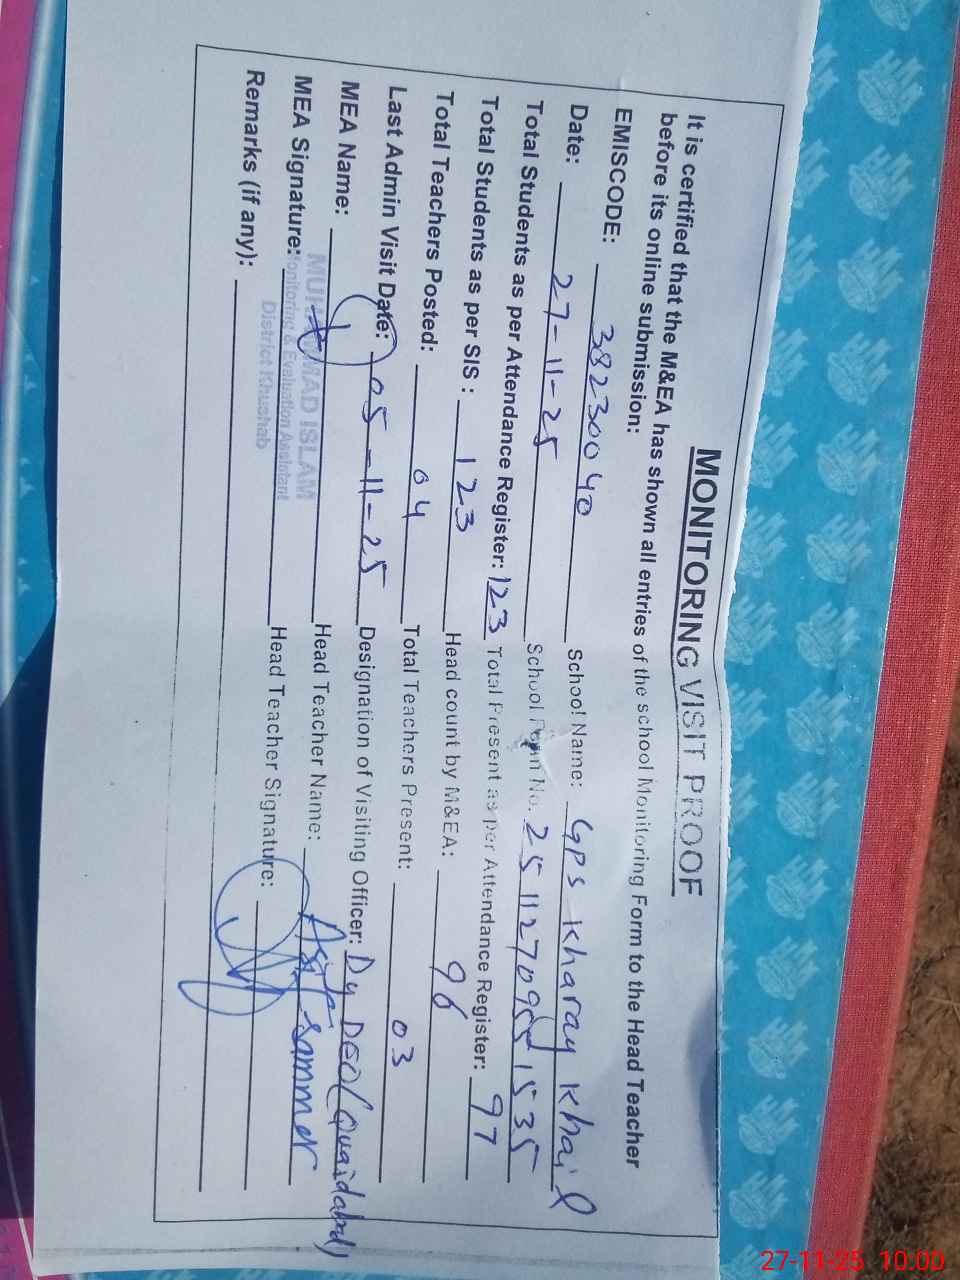 MONITORING VISIT PROOF
It is certified that the M&EA has shown all entries of the school Monitoring Form to the Head Teacher
before its online submission:
EMISCODE: 38230040 School Name: GPS Kharay Khail
Date: 27-11-25 School Form No. 25112709551535
Total Students as per Attendance Register: 123 Total Present as per Attendance Register: 97
Total Students as per SIS : 123 Head count by M&EA: 96
Total Teachers Posted: 04 Total Teachers Present: 03
Last Admin Visit Date: 05-11-25 Designation of Visiting Officer: Dy DEO (Quaidabad)
MEA Name: MUHAMMAD ISLAM Head Teacher Name: Asif Sammer
MEA Signature: Monitoring & Evaluation Assistant Head Teacher Signature:
District Khushab
Remarks (if any):
27-11-25 10:00